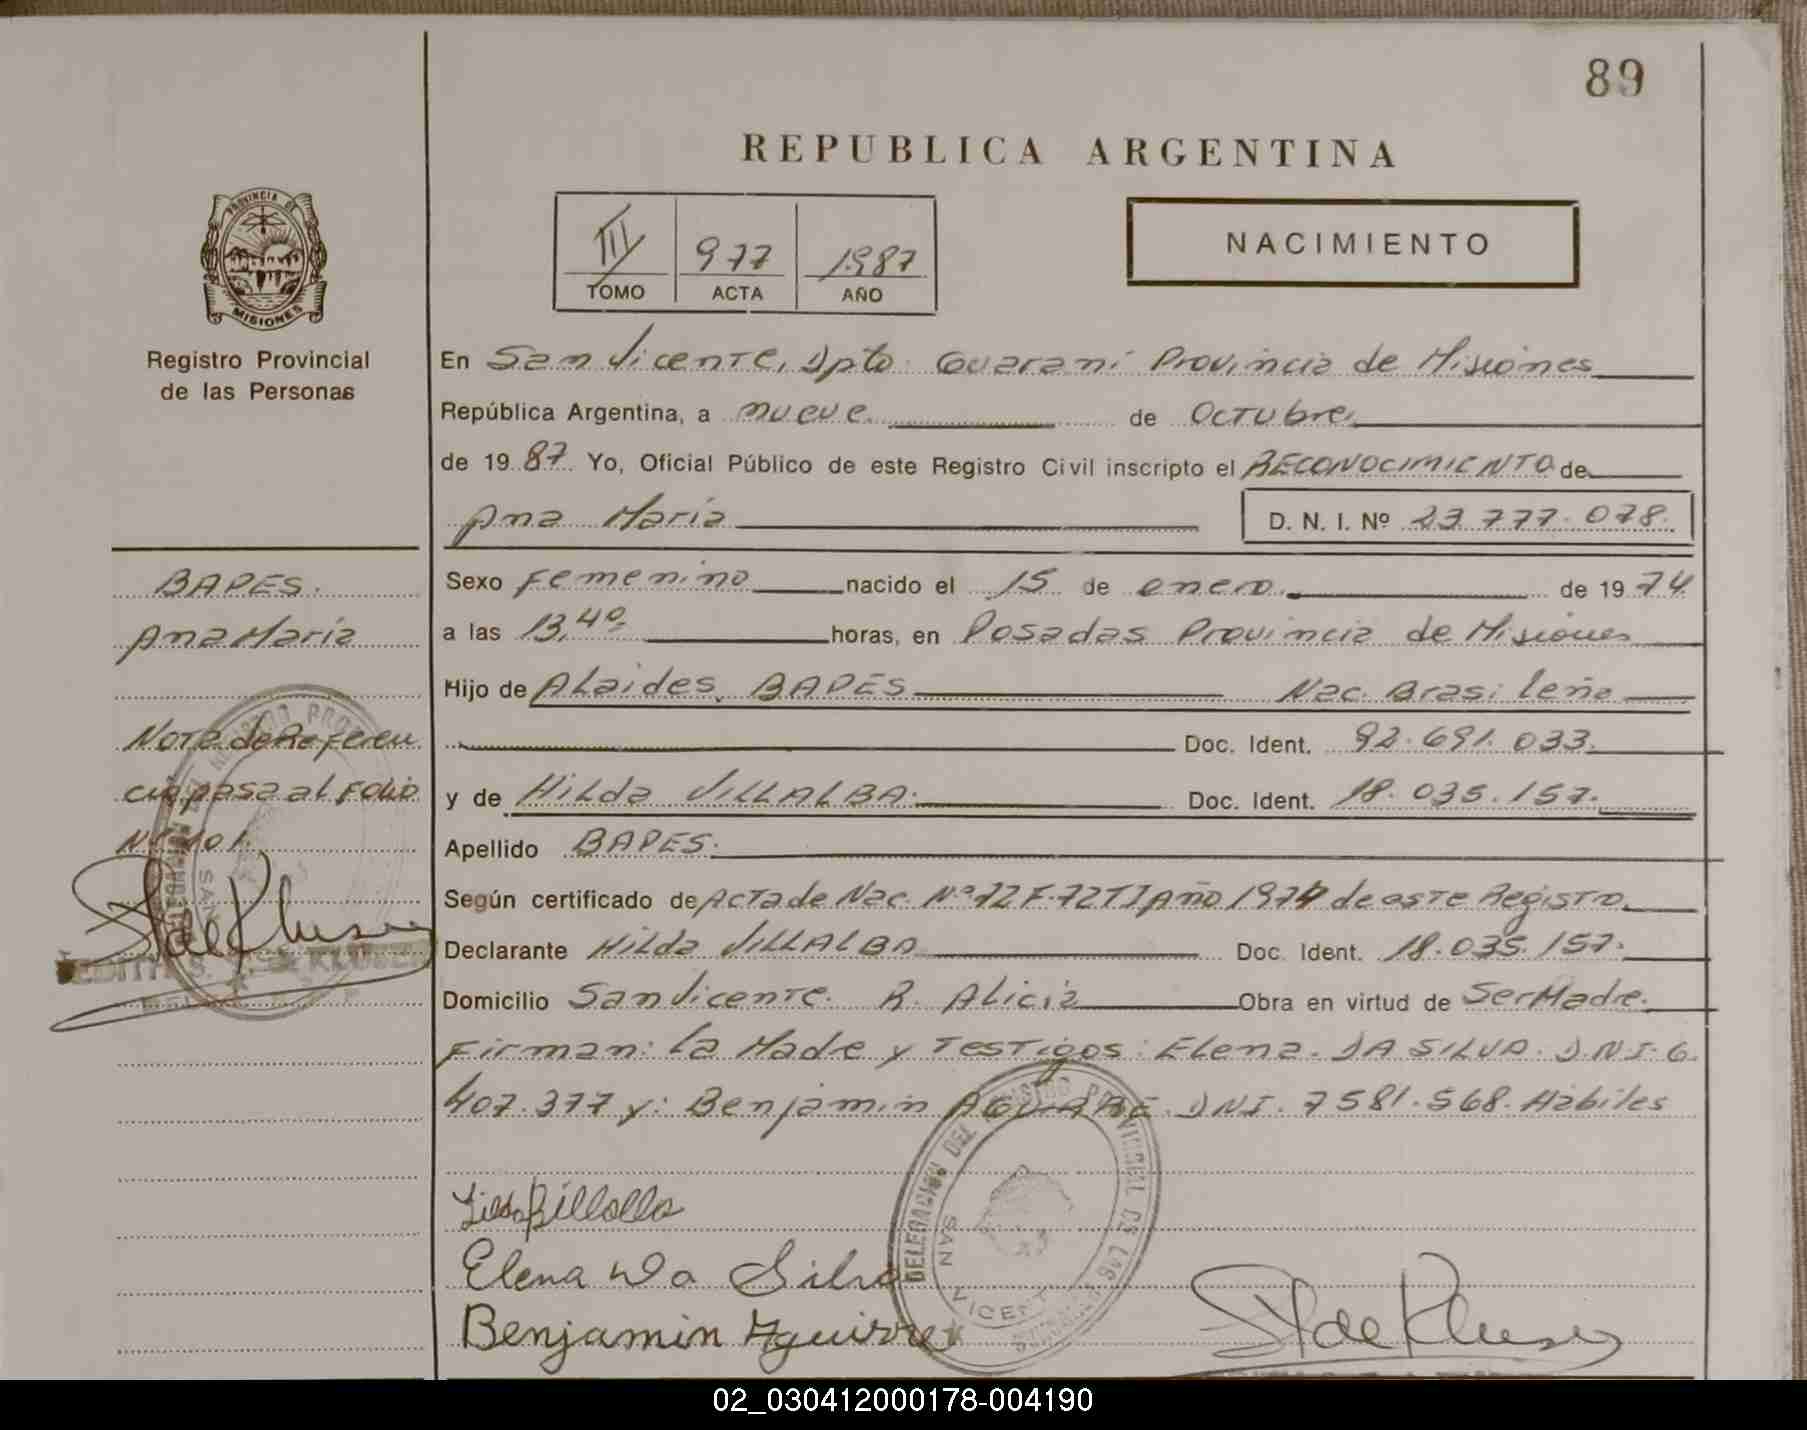 89
REPUBLICA ARGENTINA
PROVINCIA DE
MISIONES
Registro Provincial
de las Personas
III 977 1987
TOMO ACTA AÑO
NACIMIENTO
En San Vicente, Dpto. Guaraní Provincia de Misiones
República Argentina, a nueve de Octubre
de 1987. Yo, Oficial Público de este Registro Civil inscripto el RECONOCIMIENTO de
Ana María D. N. I. Nº 23.777.078.
BAPES.
Ana María
Sexo Femenino nacido el 15 de enero de 1974
a las 13,40 horas, en Posadas Provincia de Misiones
Hijo de ALaides BAPES Nac. Brasileña
Doc. Ident. 92.691.033.
y de HiLda VILLALBA. Doc. Ident. 18.035.157.
Apellido BAPES.
Nota de Referen
cia pasa al Folio
Nº 101.
Según certificado de Acta de Nac. Nº 72 F. 72 T I Año 1974 de este Registro.
Declarante HiLda VILLALBA Doc. Ident. 18.035.157.
Domicilio San Vicente. R. Alicia Obra en virtud de Ser Madre.
Firman: La Madre y Testigos: Elena. DA SILVA. D.N.I. 6.
407.377 y: Benjamin DNI. 7581.568. Hábiles
DELEGACION DEL REGISTRO PROVINCIAL DE LAS
SAN VICENTE
Elena Da Silva
Benjamin Aguirre
02_030412000178-004190